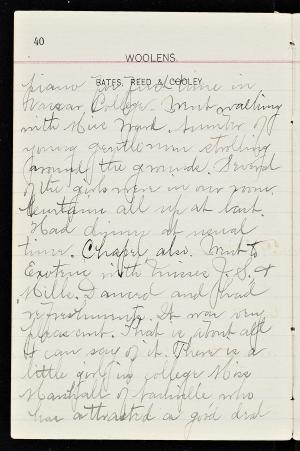 40
WOOLENS.
BATES, REED & COOLEY.
piano for first time in
Vassar College. Went walking
with Miss Ward. Number of
young gentlemen strolling
around the grounds. Several
of the girls were in our room.
Curtains all up at last.
Had dinner at usual
time. Chapel also. Went to
with Misses J. S. &
Mills. Danced and had
refreshments. It was very
pleasant. That is about all
I can say of it. There is a
little girl in college Miss
Marshall of Nashville who
has attracted a good deal